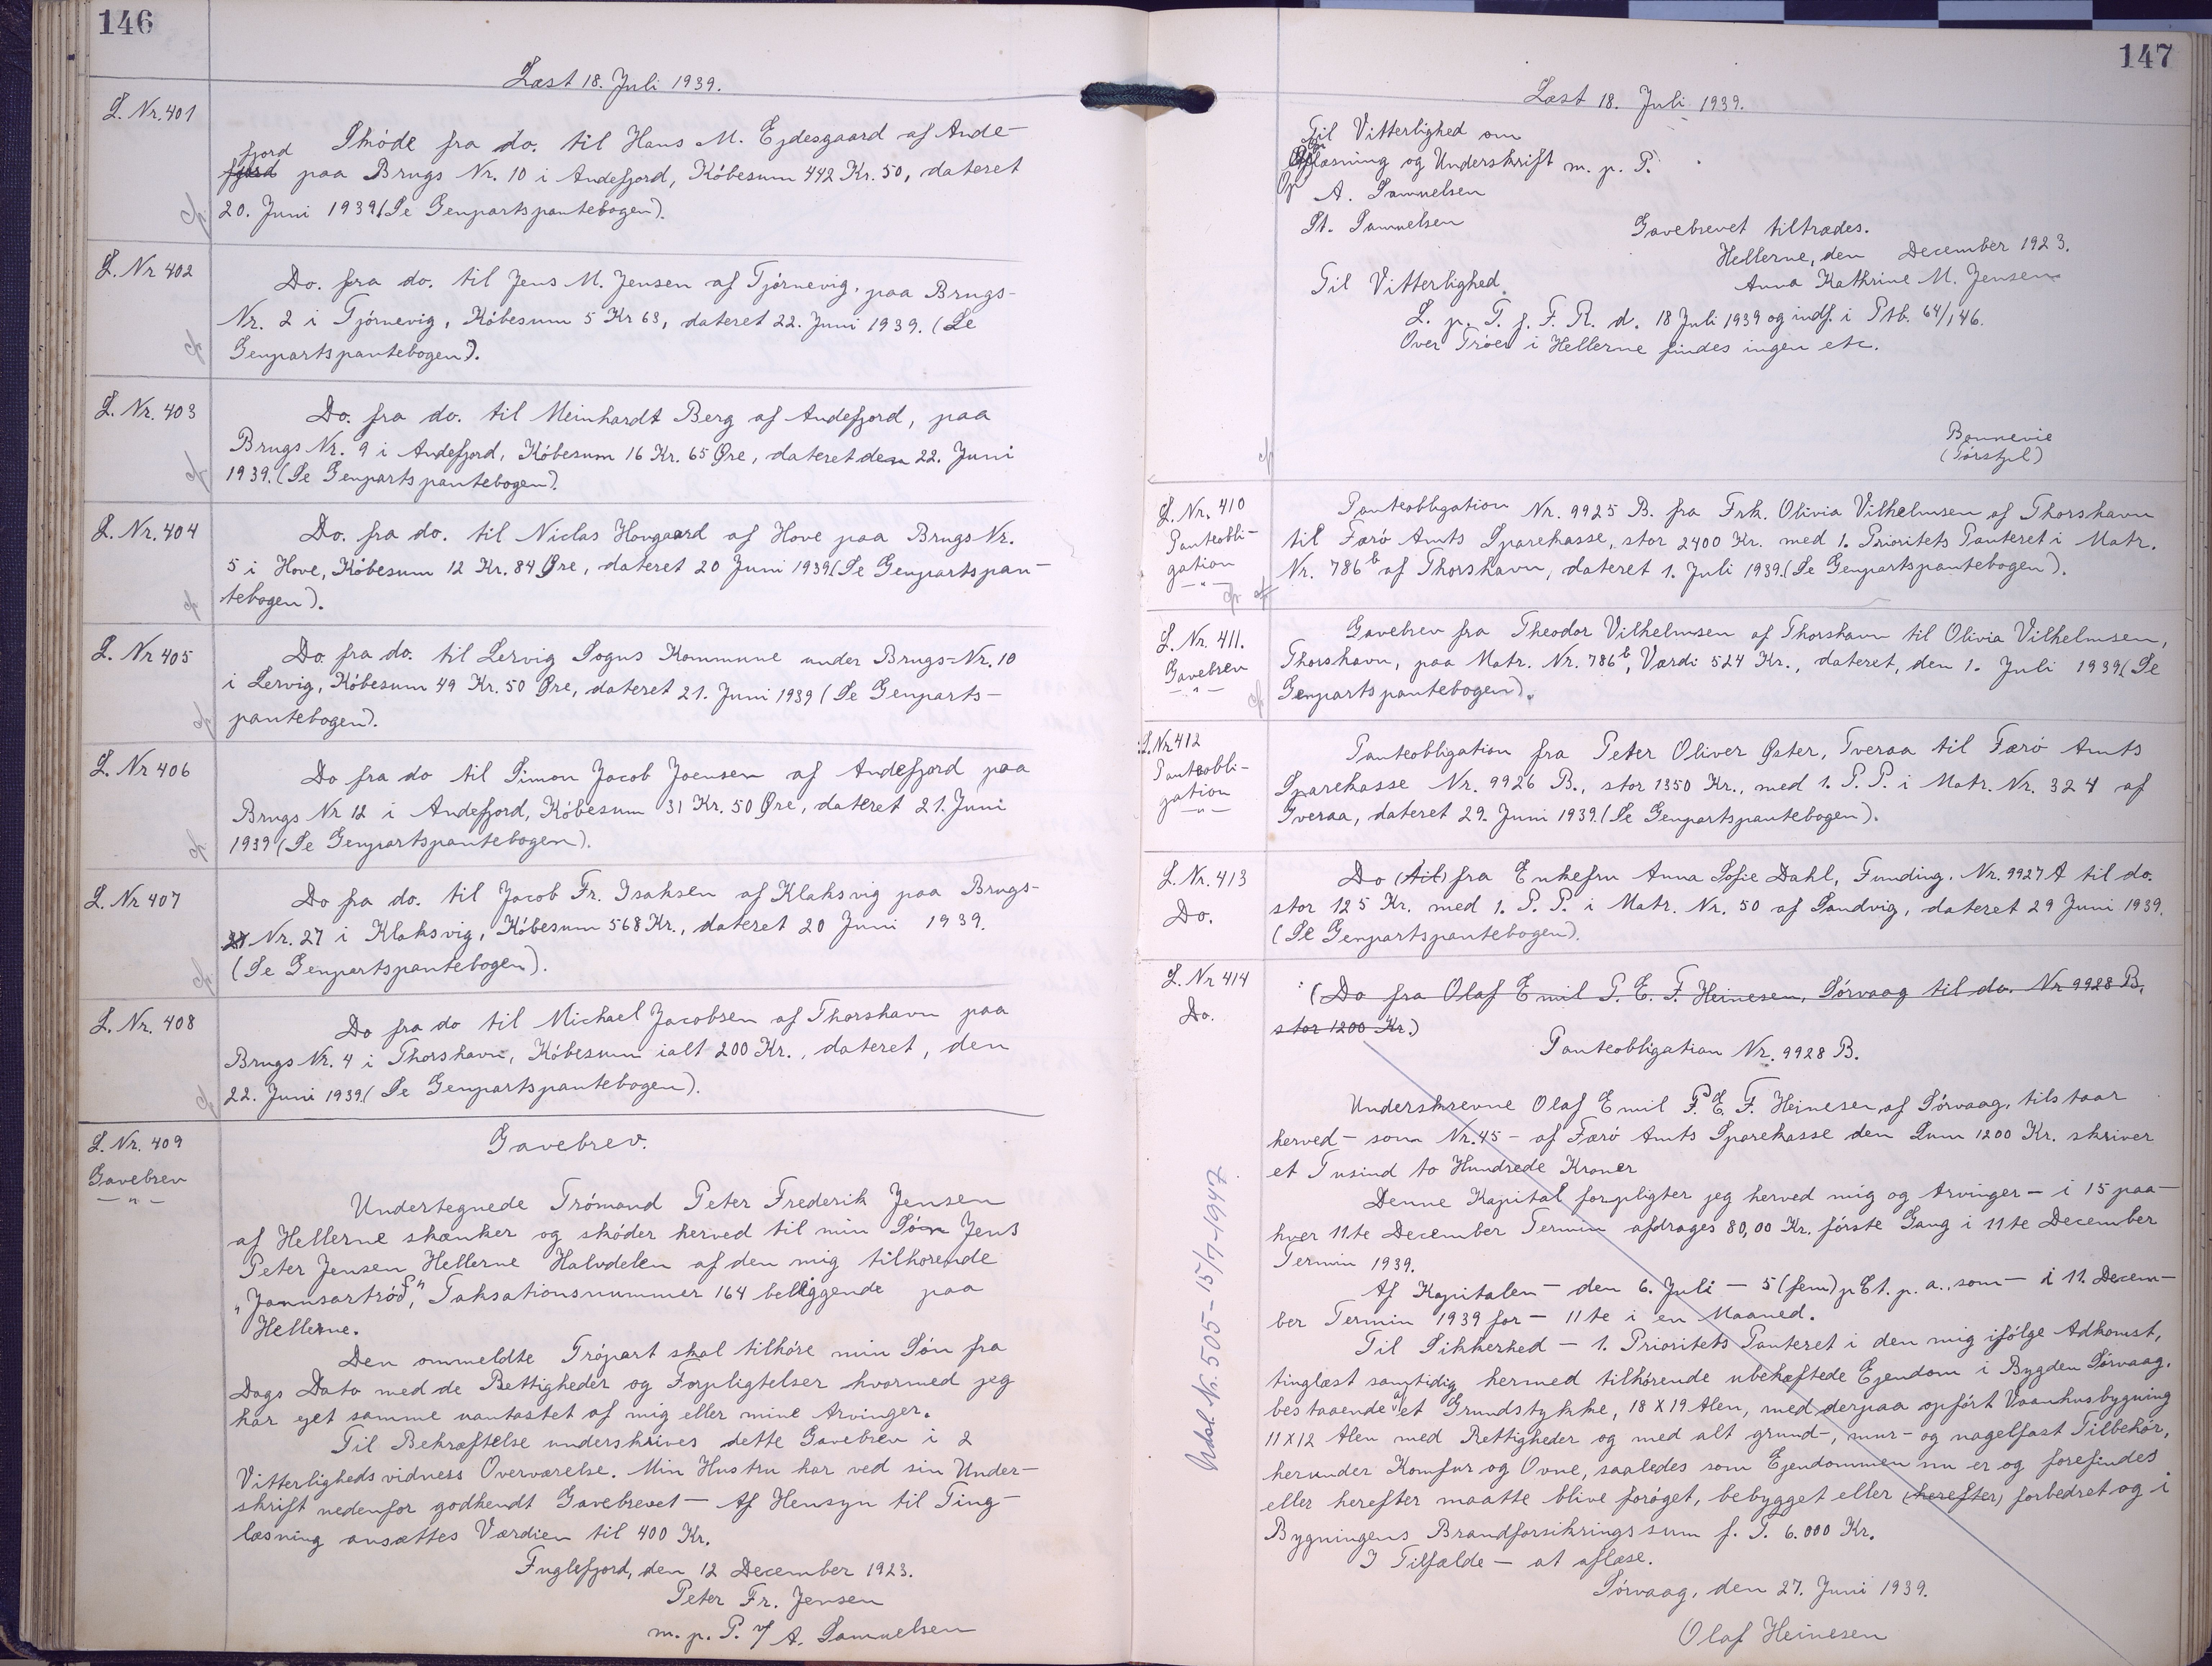 146
Læst 18. Juli 1939.
L. Nr. 401
Skøde fra do. til Hans M. Ejdesgaard af Ande-
fjord
fjord paa Brugs Nr. 10 i Andefjord, Købesum 442 Kr. 50, dateret
20. Juni 1939 (Se Genpartspantebogen).
L. Nr 402
Do. fra do. til Jens M. Jensen af Tjørnevig, paa Brugs-
Nr. 2 i Tjørnevig, Købesum 5 Kr 63, dateret 22. Juni 1939. (Se
Genpartspantebogen).
L. Nr. 403
Do. fra do. til Meinhardt Berg af Andefjord, paa
Brugs Nr. 9 i Andefjord, Købesum 16 Kr. 65 Øre, dateret den 22. Juni
1939. (Se Genpartspantebogen).
L. Nr. 404
Do. fra do. til Niclas Hovgaard af Hove paa Brugs Nr.
5 i Hove, Købesum 12 Kr. 84 Øre, dateret 20 Juni 1939 (Se Genpartspan-
tebogen).
L. Nr 405
Do fra do. til Lervig Sogns Kommune under Brugs-Nr. 10
i Lervig, Købesum 49 Kr. 50 Øre, dateret 21. Juni 1939 (Se Genparts-
pantebogen).
L. Nr 406
Do fra do til Simon Jacob Joensen af Andefjord paa
Brugs Nr 12 i Andefjord, Købesum 31 Kr. 50 Øre, dateret 21. Juni
1939 (Se Genpartspantebogen).
L. Nr 407
Do fra do. til Jacob Fr. Isaksen af Klaksvig paa Brugs-
Nr. 27 i Klaksvig, Købesum 568 Kr., dateret 20 Juni 1939.
(Se Genpartspantebogen).
L. Nr. 408
Do fra do til Michael Jacobsen af Thorshavn paa
Brugs Nr. 4 i Thorshavn, Købesum ialt 200 Kr., dateret, den
22. Juni 1939 (Se Genpartspantebogen).
L. Nr. 409
Gavebrev
— " —
Gavebrev.
Undertegnede Trømand Peter Frederik Jensen
af Hellerne skænker og skøder herved til min Søn Jens
Peter Jensen Hellerne Halvdelen af den mig tilhørende
"Jannsartrød", Taksationsnummer 164 beliggende paa
Hellerne.
Den ommeldte Trøpart skal tilhøre min Søn fra
Dags Dato med de Rettigheder og Forpligtelser hvormed jeg
har ejet samme uantastet af mig eller mine Arvinger.
Til Bekræftelse underskrives dette Gavebrev i 2
Vitterlighedsvidners Overværelse. Min Hustru har ved sin Under-
skrift nedenfor godkendt Gavebrevet — Af Hensyn til Ting-
læsning ansættes Værdien til 400 Kr.
Fuglefjord, den 12 December 1923.
Peter Fr. Jensen
m. p. P. v/ A. Samuelsen
147
Læst 18. Juli 1939.
Til Vitterlighed om
Oplæsning og Underskrift m. p. P.
A. Samuelsen
St. Samuelsen
Gavebrevet tiltrædes.
Hellerne, den December 1923.
Til Vitterlighed
Anna Kathrine M. Jensen
L. p. T. f. F. R. d. 18 Juli 1939 og indf. i Ptb. 64/146.
Over Trøer i Hellerne findes ingen etc.
Bonnevie
L. Nr. 410
Panteobli-
gation
— " —
Panteobligation Nr. 9925 B. fra Frk. Olivia Vilhelmsen af Thorshavn
til Færø Amts Sparekasse, stor 2400 Kr. med 1. Prioritets Panteret i Matr.
Nr. 786 b af Thorshavn, dateret 1. Juli 1939. (Se Genpartspantebogen).
L. Nr. 411.
Gavebrev
— " —
Gavebrev fra Theodor Vilhelmsen af Thorshavn til Olivia Vilhelmsen,
Thorshavn, paa Matr. Nr. 786 b, Værdi 524 Kr., dateret, den 1. Juli 1939 (Se
Genpartspantebogen).
L. Nr 412
Panteobli-
gation
— " —
Panteobligation fra Peter Oliver Øster, Tveraa til Færø Amts
Sparekasse Nr. 9926 B., stor 1350 Kr., med 1. P. P. i Matr. Nr. 324 af
Tveraa, dateret 29. Juni 1939. (Se Genpartspantebogen).
L. Nr. 413
Do.
Do (til) fra Enkefru Anna Sofie Dahl, Funding. Nr. 9927 A til do.
stor 125 Kr. med 1. P. P. i Matr. Nr. 50 af Sandvig, dateret 29 Juni 1939.
(Se Genpartspantebogen).
L. Nr 414
Do.
(Do fra Olaf Emil P. E. F. Heinesen, Sørvaag til do. Nr 9928 B,
stor 1200 Kr.)
Panteobligation Nr. 9928 B.
Underskrevne Olaf Emil P. E. F. Heinesen, af Sørvaag, tilstaar
herved — som Nr. 45 — af Færø Amts Sparekasse den Sum 1200 Kr. skriver
et Tusind to Hundrede Kroner
Denne Kapital forpligter jeg herved mig og Arvinger — i 15 paa-
hver 11te December Termin afdrages 80,00 Kr. første Gang i 11te December
Termin 1939.
Af Kapitalen — den 6. Juli — 5 (fem) pCt. p. a., som — i 11. Decem-
ber Termin 1939 for — 11te i en Maaned.
Til Sikkerhed — 1. Prioritets Panteret i den mig ifølge Adkomst,
tinglæst samtidig hermed tilhørende ubehæftede Ejendom i Bygden Sørvaag.
bestaaende af et Grundstykke, 18 X 19 Alen, med derpaa opført Vaanhusbygning
11 X 12 Alen med Rettigheder og med alt grund-, mur- og nagelfast Tilbehør,
herunder Komfur og Ovne, saaledes som Ejendommen nu er og forefindes
eller herefter maatte blive forøget, bebygget eller (herefter) forbedret og i
Bygningens Brandforsikringssum f. T. 6.000 Kr.
I Tilfælde — at aflæse.
Sørvaag, den 27. Juni 1939.
Olaf Heinesen
Nr. 505 - 15/7-1947